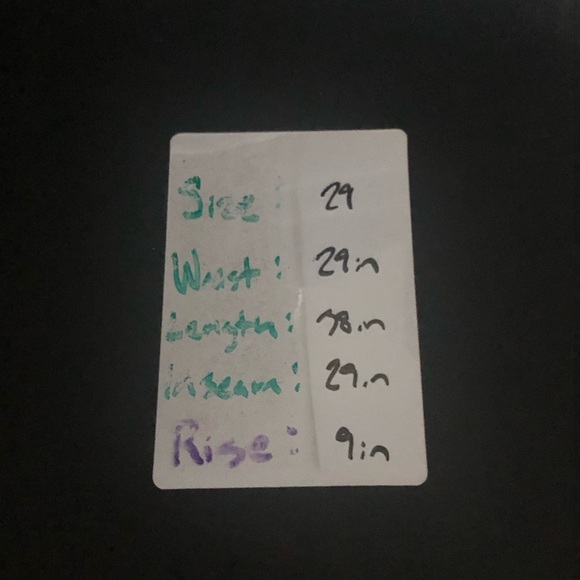 Size: 29
Waist: 29in
Length: 38in
inseam: 29in
Rise: 9in